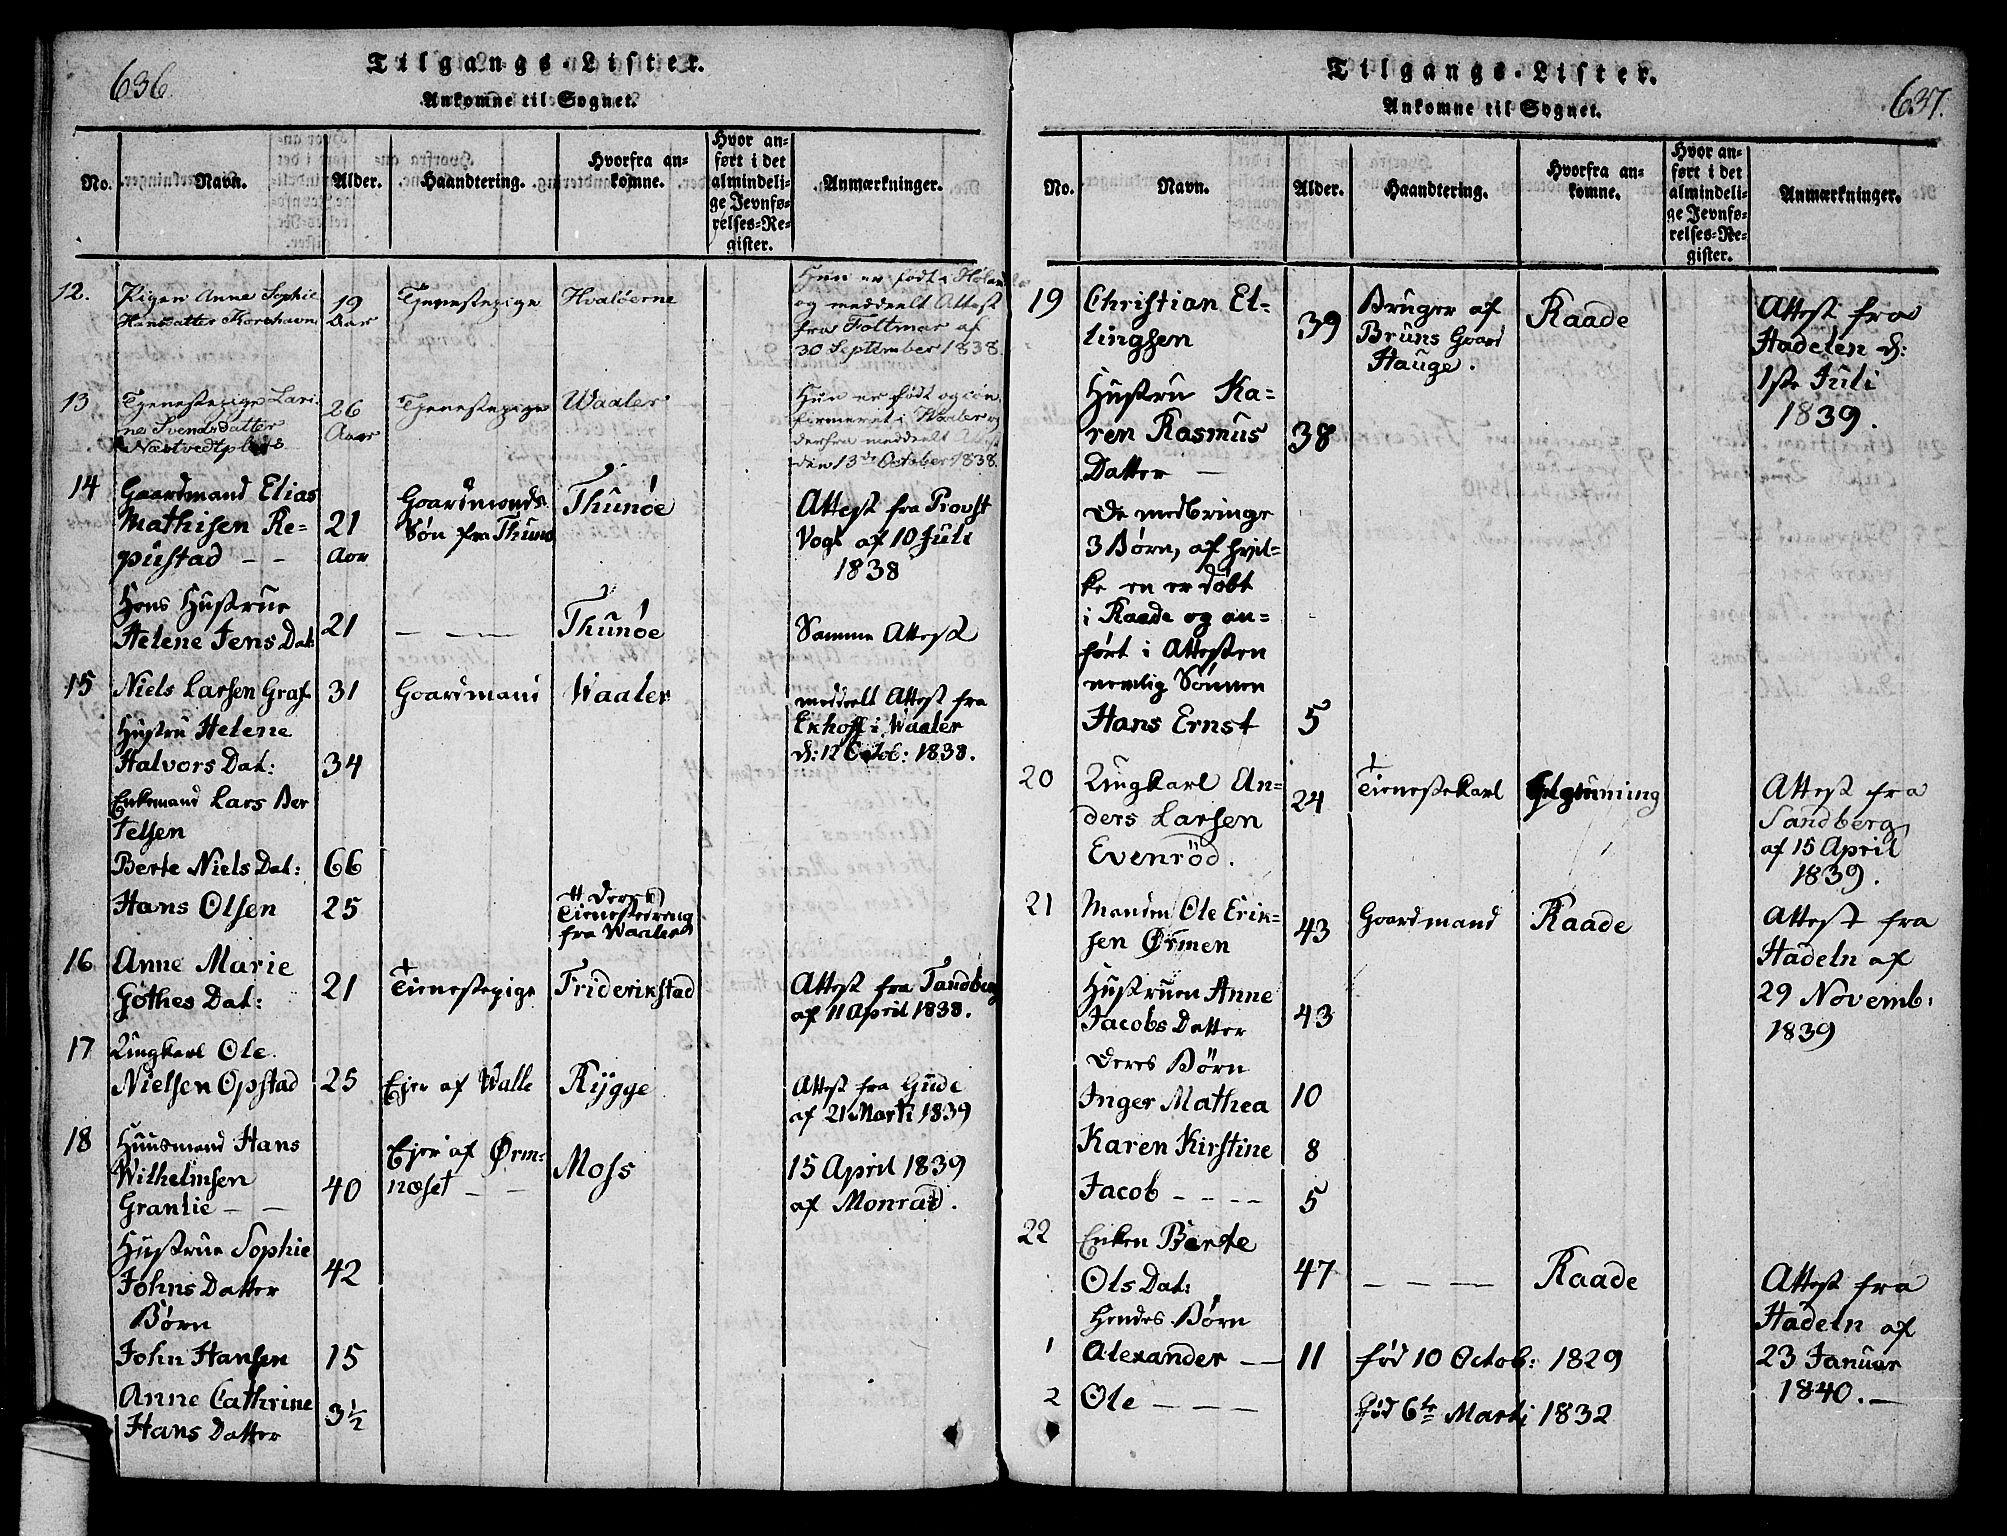 636.
Tilgangs-Lister.
Ankomne til Sognet.
No. Navn. Alder. Haandtering. Hvorfra an-
komne. Hvor an-
ført i det
almindeli-
ge Jevnfø-
relses-Re-
gister. Anmærkninger.
12. Pigen Anne Sophie
Hansdatter Korshavn
19
Aar
Tjenestepige
Hvaløerne
Hun er født i
og meddeelt Attest
fra Foltmar af
30 September 1838.
13 Tjenestepige Lari-
ne Svendsdatter
26
Aar
Tjenestepige
Waaler
Hun er født og con-
firmeret i Waaler og
derfra meddeelt Attest
den 13de October 1838.
14 Gaardmand Elias
Mathisen Re-
pústad - -
21
Aar
Gaardmands
Søn fra Thunø
Thunøe
Attest fra Provst
Vogt af 10 Juli
1838
Hans Hustrue
Helene Jens Dat:
21
- - -
Thunøe
Samme Attest
15 Niels Larsen Graf
31
Gaardmand
Waaler
meddeelt Attest fra
Ekhoff i Waaler
d: 12 Octob: 1838.
Hustru Helene
Halvors Dat:
34
Enkemand Lars Ber
telsen
Berte Niels Dat:
66
Hans Olsen
25
Deres
Tienestedreng
fra Waaler
16 Anne Marie
Gothes Dat:
21
Tienestepige
Friderikstad
Attest fra Tandberg
af 11 April 1838.
17 Ungkarl Ole
Nielsen Opstad
25
Ejer af Walle
Rygge
Attest fra Gude
af 21 Marti 1839
18 Huusmand Hans
Wilhelmsen
Grantie - -
40
Ejer af Ørm-
næset - -
Moss
15 April 1839
af Monrad.
Hustrue Sophie
Johns Datter
42
Børn
John Hansen
15
Anne Cathrine
Hans Datter
3½
637.
Tilgangs-Lister.
Ankomne til Sognet.
No. Navn. Alder. Haandtering. Hvorfra an-
komne. Hvor an-
ført i det
almindeli-
ge Jevnfø-
relses-Re-
gister. Anmærkninger.
19 Christian El-
lingsen
39
Bruger af
Bruns Gaard
Hauge.
Raade
Attest fra
Hadelen d:
1ste Juli
1839.
Hustru Ka-
ren Rasmus
Datter -
38
De medbringe
3 Børn, af hvil-
ke en er døbt
i Raade og an-
ført i Attesten
nemlig Sønnen
Hans Ernst
5
20 Ungkarl An-
ders Larsen
Evenröd.
24
Tienestekarl
Attest fra
Sandberg
af 15 April
1839.
21 Manden Ole Erik-
sen Ørmen
43
Gaardmand
Raade
Attest fra
Hadeln af
29 Novemb:
1839
Hustruen Anne
Jacobs Datter
43
Deres Børn
Inger Mathea
10
Karen Kirstine
8
Jacob - - - -
5
22 Enken Berte
Ols Dat:
47
- - -
Raade
Attest fra
Hadeln af
23 Januar
1840. -
Hendes Børn
1 Alexander - -
11
fød 10 Octob: 1829
2 Ole - - -
fød 6te Marti 1832